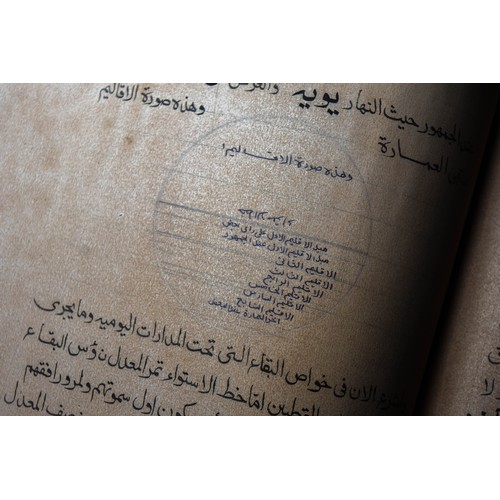 الجمهور حيث النهار يويه والعرض
العمارة وهذه صورة الاقاليم
وهذه صورة الاقاليم
مبدا الاقليم الاول على راى بعض
مبدا الاقليم الاول عند الجمهور
الاقليم الثانى
الاقليم الثالث
الاقليم الرابع
الاقليم الخامس
الاقليم السادس
الاقليم السابع
اخر العمارة عند بعض
الان فى خواص البقاع التى تحت المدارات اليومية وما يجرى
القطبين اما خط الاستواء تمر المعدل برؤس البقاع
يكون اول سموتهم ولمرور افقهم
نصف المعدل